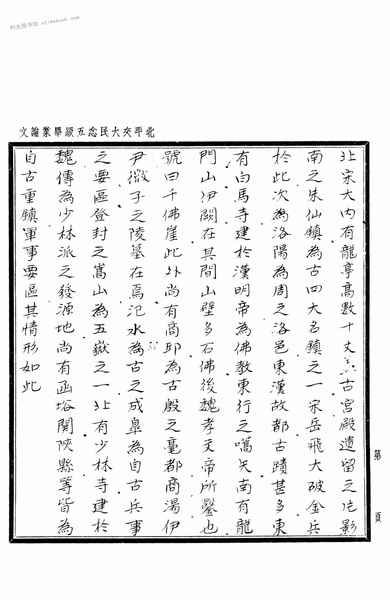 北平交大民念五級畢業論文
北宋大內有龍亭高數十丈古宮殿遺留之片影
南之朱仙鎮為古四大名鎮之一宋岳飛大破金兵
於此次為洛陽為周之洛邑東漢故都古蹟甚多東
有白馬寺建於漢明帝為佛教東行之嚆矢南有龍
門山伊闕在其間山壁多石佛後魏孝文帝所鑿也
號曰千佛崖此外尚有商邱為古殷之亳都商湯伊
尹微子之陵墓在焉氾水為古之成皋為自古兵事
之要區登封之嵩山為五嶽之一北有少林寺建於
魏傳為少林派之發源地尚有函谷關陝縣等皆為
自古重鎮軍事要區其情形如此
第 頁